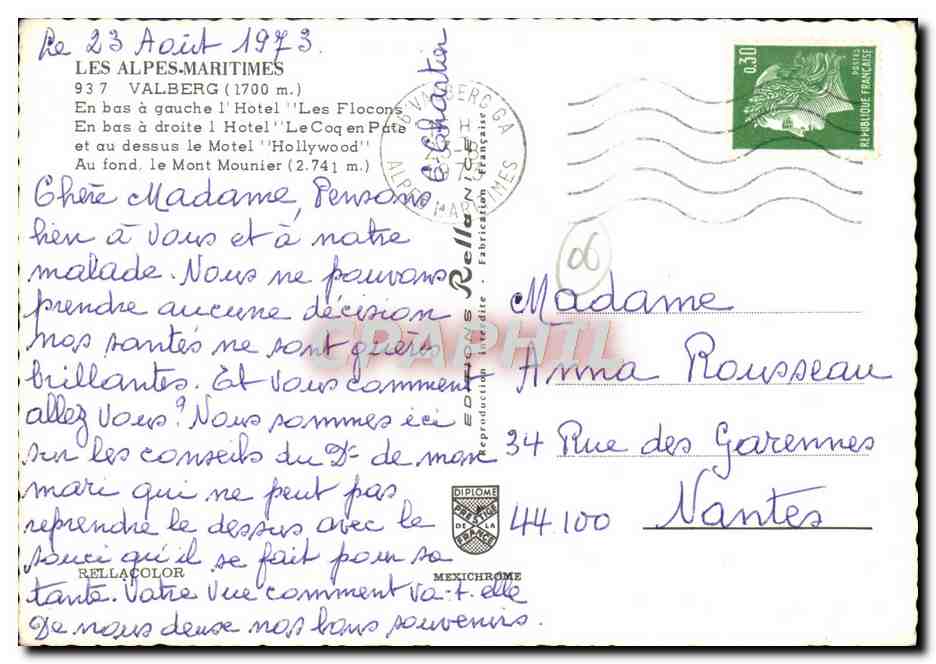 Le 23 Août 1973.
LES ALPES-MARITIMES
937 VALBERG (1700 m.)
En bas à gauche l'Hotel "Les Flocons
En bas à droite l Hotel "Le Coq en Pâte
et au dessus le Motel "Hollywood"
Au fond, le Mont Mounier (2.741 m.)
Chère Madame, Pensons
bien à vous et à notre
malade. Nous ne pouvons
prendre aucune décision
nos santés ne sont guères
brillantes. Et vous comment
allez vous? Nous sommes ici
sur les conseils du Dr de mon
mari qui ne peut pas
reprendre le dessus avec le
souci qu'il se fait pour sa
tante. Votre vue comment va-t-elle
De nous deux nos bons souvenirs.
Chartier
RELLACOLOR
MEXICHROME
EDITIONS Rella NICE
Reproduction interdite - Fabrication Française
VALBERG GA
ALPES MARITIMES
0,30
POSTES
REPUBLIQUE FRANÇAISE
06
Madame
Anna Rousseau
34 Rue des Garennes
44.100 Nantes
DIPLOME
PRESTIGE
DE LA
FRANCE
CPAPHIL